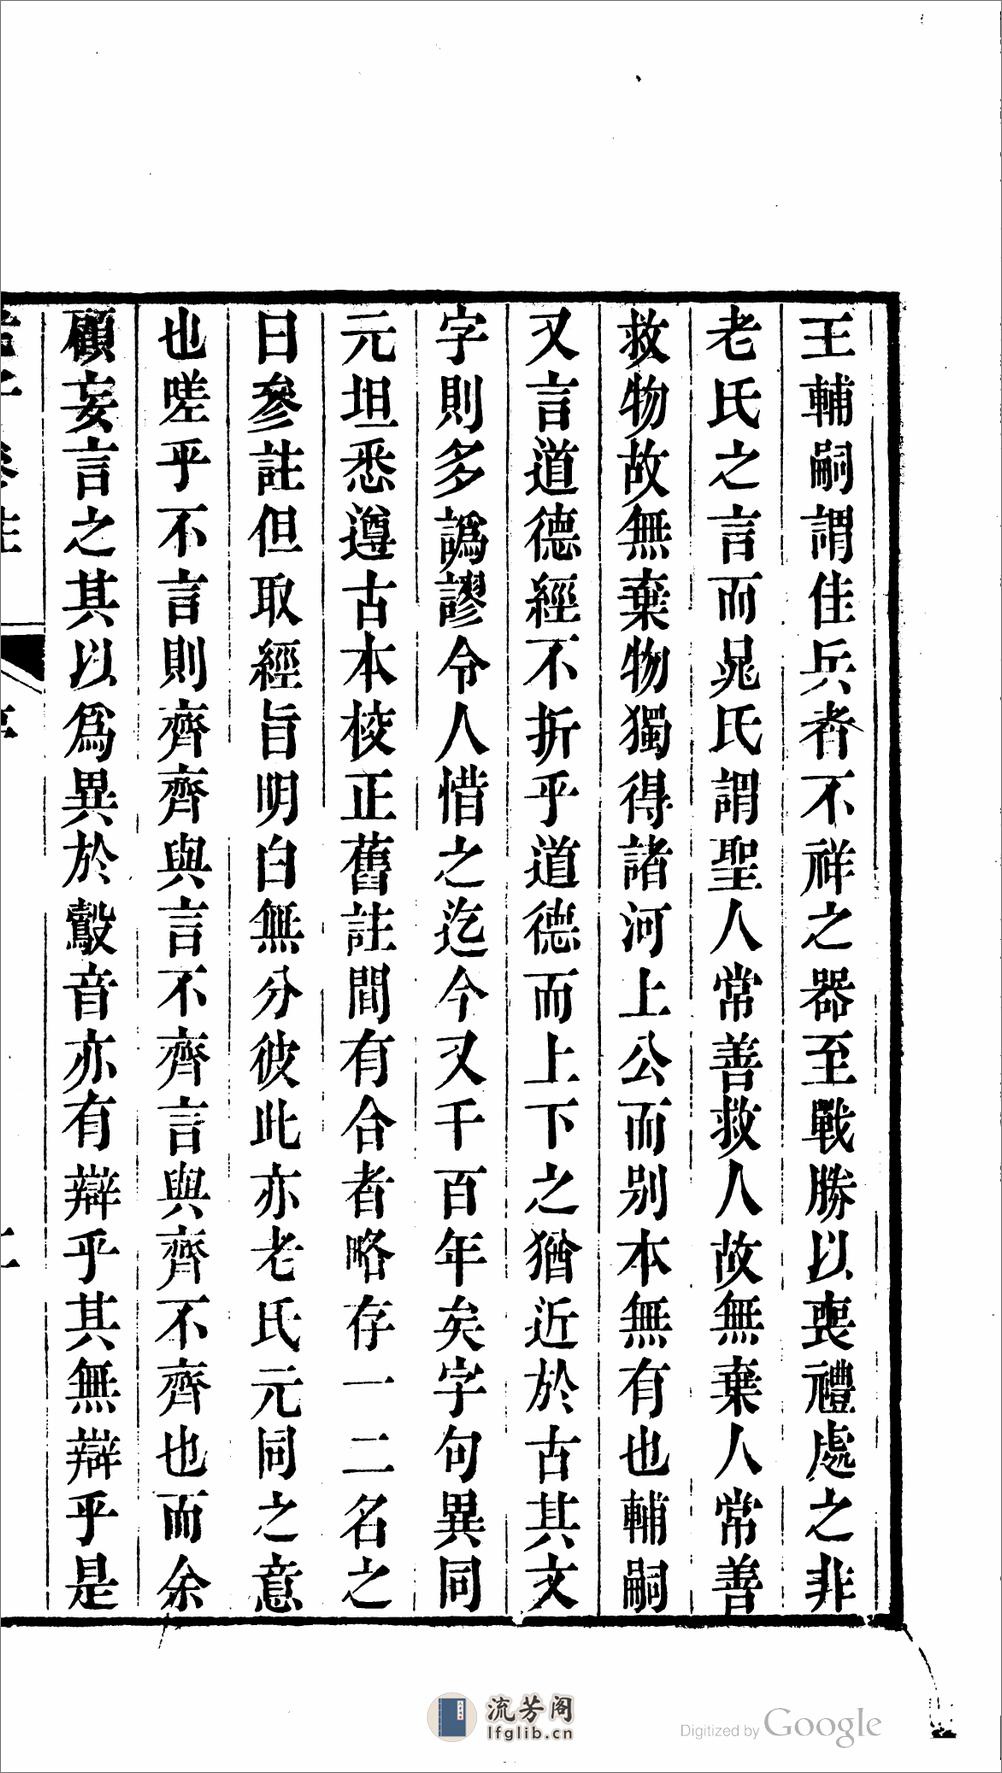 王輔嗣謂佳兵者不祥之器至戰勝以喪禮處之非
老氏之言而晁氏謂聖人常善救人故無棄人常善
救物故無棄物獨得諸河上公而别本無有也輔嗣
又言道德經不折乎道德而上下之猶近於古其文
字則多譌謬令人惜之迄今又千百年矣字句異同
元坦悉遵古本校正舊註間有合者略存一二名之
曰參註但取經旨明白無分彼此亦老氏元同之意
也嗟乎不言則齊齊與言不齊言與齊不齊也而余
顧妄言之其以爲異於鷇音亦有辯乎其無辯乎是
流芳阁
lfglib.cn
Digitized by Google